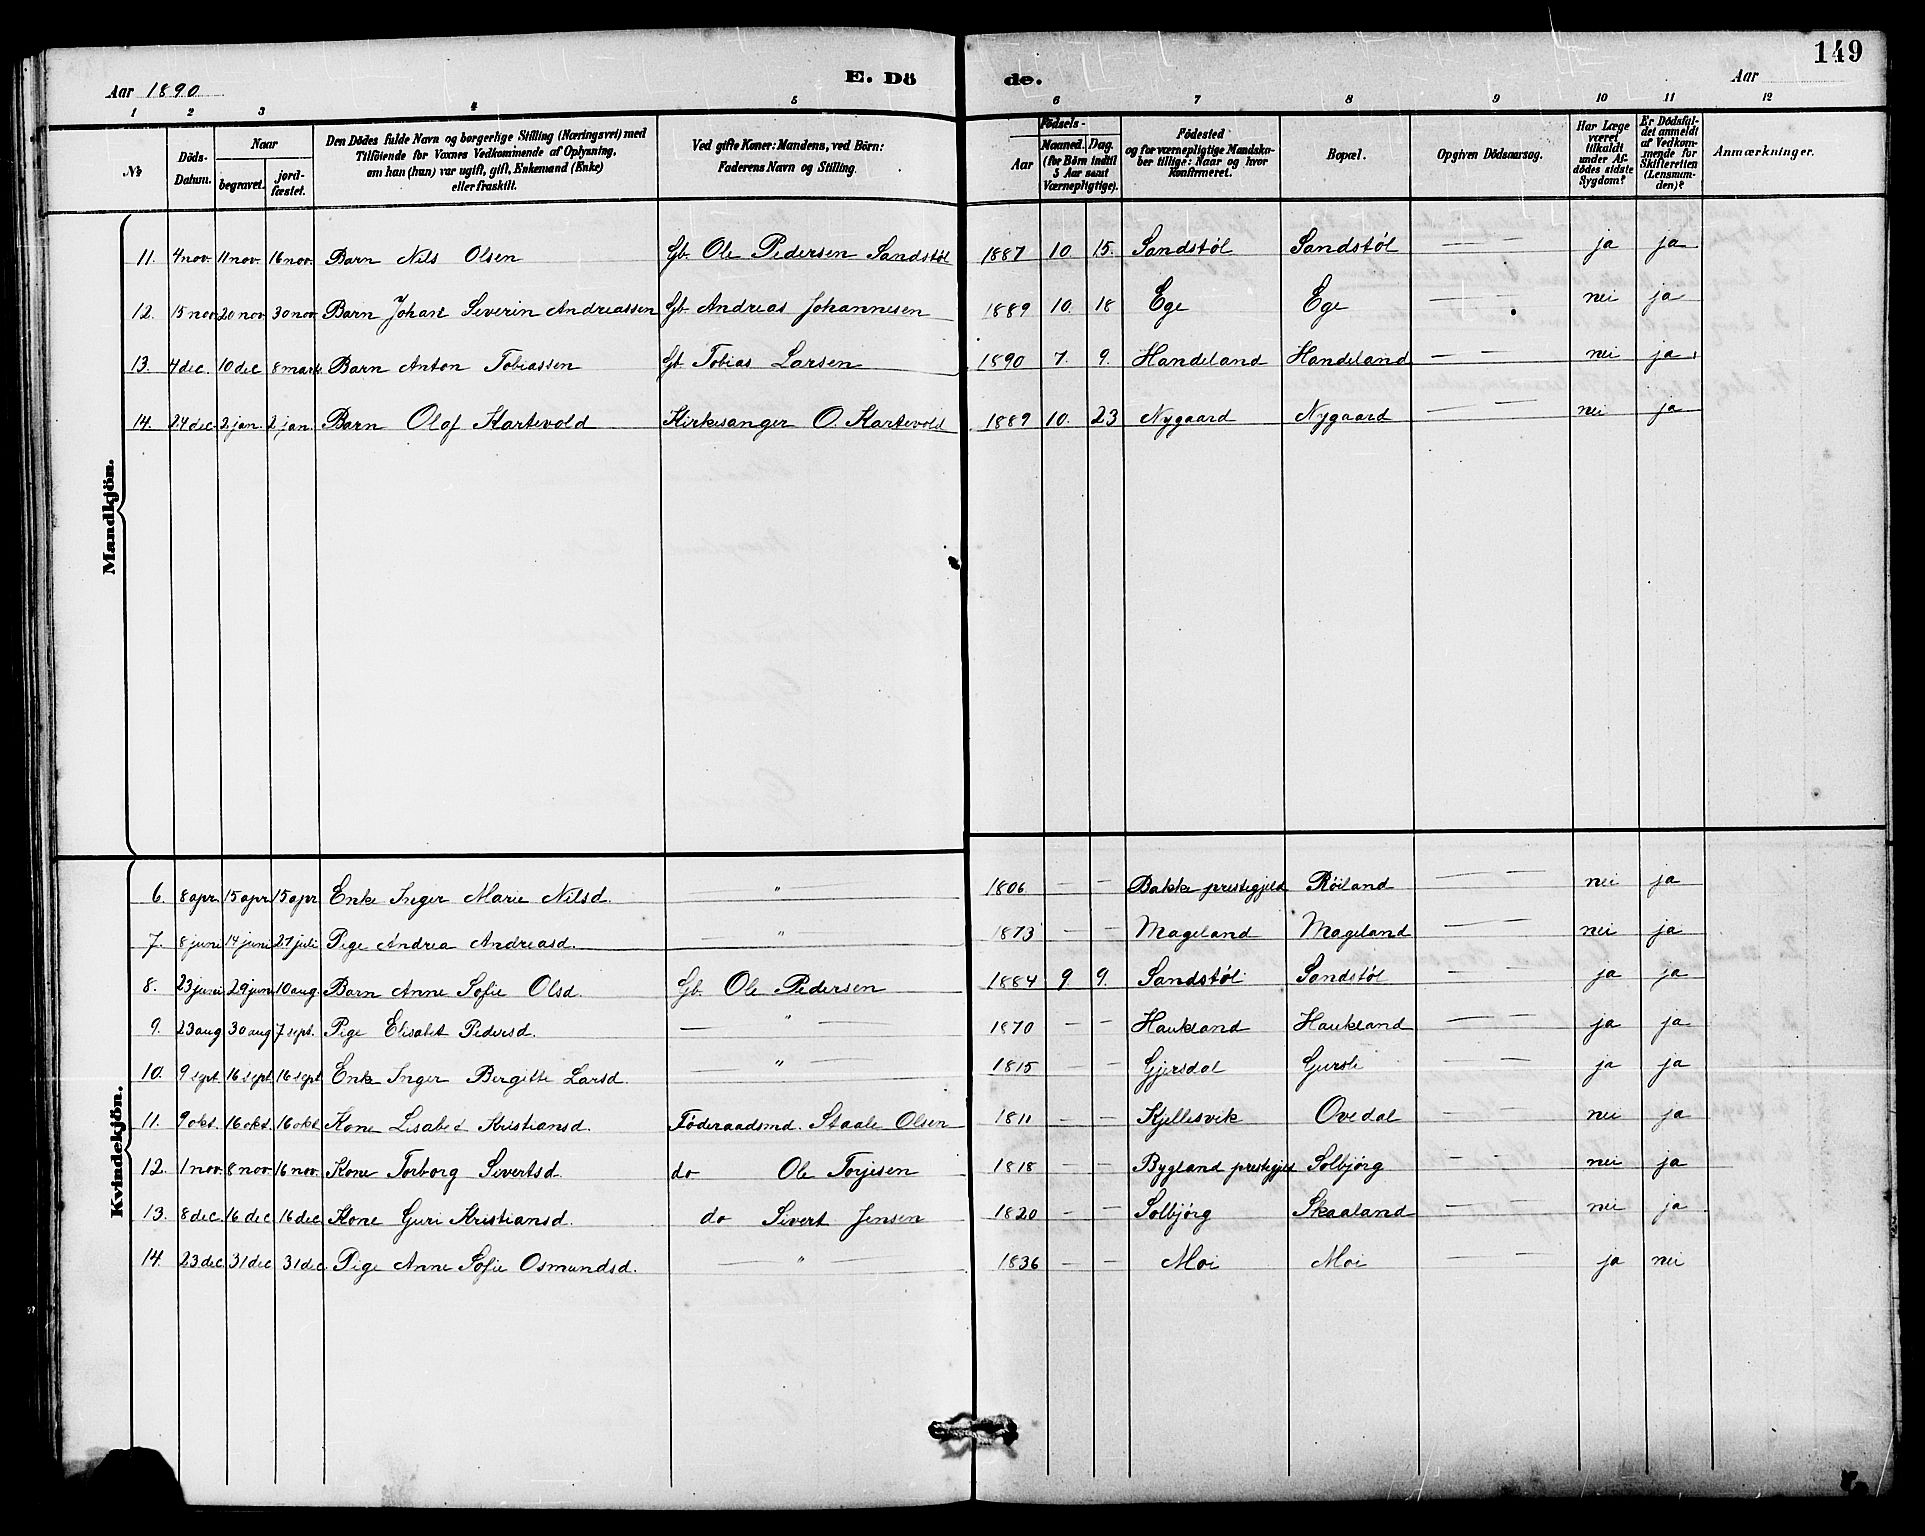 149
Aar 1890
E. Dö
de.
Aar
1 2 3 4 5 6 7 8 9 10 11 12
№
Döds-
Datum.
Naar
begravet.
jord-
fæstet.
Den Dödes fulde Navn og borgerlige Stilling (Næringsvei) med
Tilföiende for Voxnes Vedkommende af Oplysning,
om han (hun) var ugift, gift, Enkemand (Enke)
eller fraskilt.
Ved gifte Koner: Mandens, ved Börn:
Faderens Navn og Stilling.
Födsels-
Aar
Maaned. Dag.
(for Börn indtil
5 Aar samt
Værnepligtige).
Födested
og for værnepligtige Mandska-
ber tillige: Naar og hvor
konfirmeret.
Bopæl.
Opgiven Dödsaarsag.
Har Læge
været
tilkaldt
under Af-
dödes sidste
Sygdom?
Er Dödsfal-
det anmeldt
af Vedkom-
mende for
Skifteretten
(Lensman-
den)?
Anmærkninger.
Mandkjön.
11. 4 nov. 11 nov. 16 nov. Barn Nils Olsen Gb. Ole Pedersen Sandstøl 1887 10. 15. Sandstøl Sandstøl — — ja ja
12. 15 nov 20 nov. 30 nov. Barn Johan Severin Andreassen Gb. Andreas Johannesen 1889 10. 18 Ege Ege — — nei ja
13. 4 dec. 10 dec 8 marts Barn Anton Tobiassen Gb. Tobias Larsen 1890 7. 9. Handeland Handeland — — nei ja
14. 24 dec. 2 jan. 2 jan. Barn Olaf Kartevold Kirkesanger O. Kartevold 1889 10. 23 Nygaard Nygaard — — nei ja
Kvindekjön.
6. 8 apr. 15 apr 15 apr Enke Inger Marie Nilsd. — " — 1806 — — Bakke prestegjeld Røiland — — nei ja
7. 8 juni 14 juni 27 juli Pige Andrea Andreasd. — " — 1873 — — Mageland Mageland — — nei ja
8. 23 juni 29 juni 10 aug. Barn Anne Sofie Olsd. Gb. Ole Pedersen 1884 9 9. Sandstøl Sandstøl — — ja ja
9. 23 aug 30 aug 7 sept. Pige Elisabet Pedersd. — " — 1870 — — Haukland Haukland — — ja ja
10. 9 sept 16 sept. 16 sept Enke Inger Bergitte Larsd. " — 1815 — — Gjersdal Gursli — — ja ja
11. 9 okt. 16 okt. 16 okt Kone Lisabet Kristiansd. Føderaadsmd. Staale Olsen 1811 — — Kjellesvik Ovedal — — nei ja
12. 1 nov. 8 nov. 16 nov. Kone Torborg Sivertsd. do Ole Torjesen 1818 — — Bygland prestegjeld Solbjørg — — nei ja
13. 8 dec. 16 dec 16 dec Kone Guri Kristiansd. do Sivert Jensen 1820 — — Solbjørg Skaaland — — nei ja
14. 23 dec 31 dec 31 dec. Pige Anne Sofie Osmundsd. — " — 1836 — — Moi Moi — — ja nei